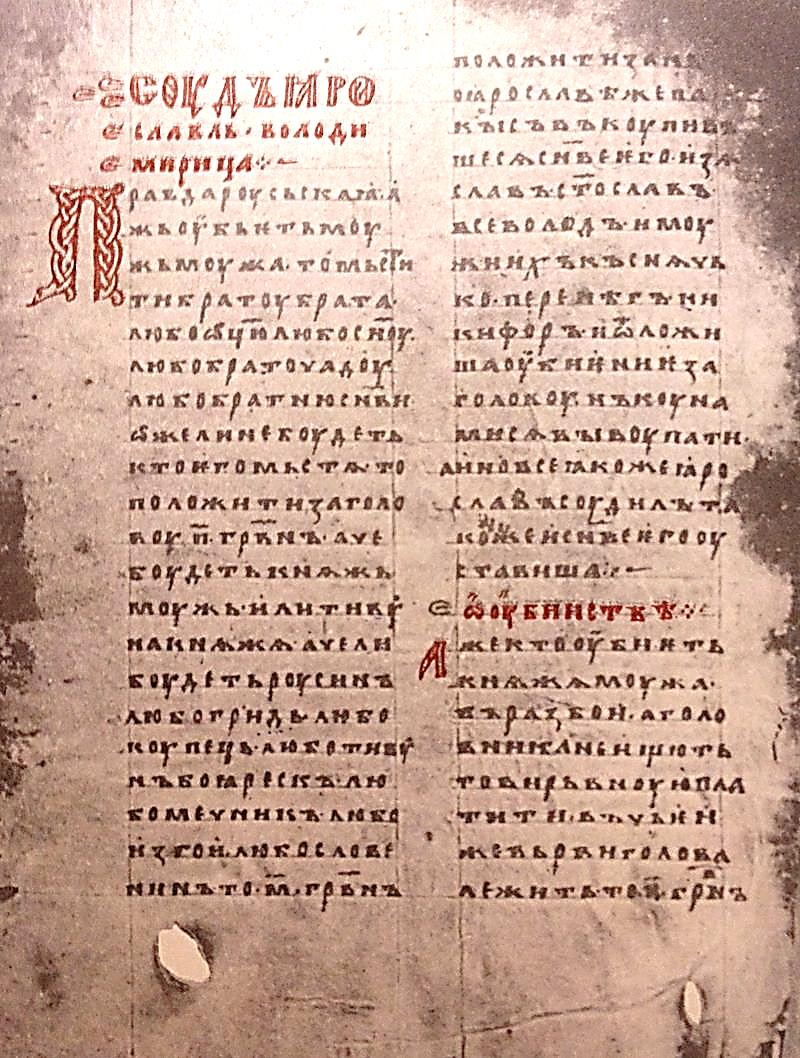 СОУДЪ ꙖРО
СЛАВЛЬ · ВОЛОДИ
МИРИЦА ⁘
Правда роусьскаꙗ · а
жь оубьѥть моу
жь моужа · то мьсти
ти братоу брата ·
любо ѿц҃ю любо сн҃оу ·
любо братоу адоу
любо братню сн҃ви
ѡже ли не боудеть
кто ѥго мьстѧ · то
положити за голо
воу · п҃ · грв҃нъ · аче
боудеть кнѧжь
моужь · или тивоу
на кнѧжѧ · аче ли
боудеть роусинъ
любо гридь · любо
коупець · любо тивоу
нъ боꙗрескъ · лю
бо мечникъ · любо
изгои · любо слове
нинъ то · м҃ · грв҃нъ
положити за нь
по ꙗрославѣ же па
кы съвъкоупивъ
шесѧ сн҃ве ѥго · изѧ
славъ · ст҃ославъ ·
всеволодъ · и моу
жи ихъ късначь
ко · перенѣгъ · ни
кифоръ · и ѿложи
ша оубиѥниѥ за
головоу · нъ коуна
ми сѧ выкоупати ·
а ино все ꙗкоже ꙗро
славъ соудилъ · та
коже и сн҃ве ѥго оу
ставиша ⁘
Ѡ оубииствѣ ⁘
Аже кто оубиѥть
кнѧжѧ моужа ·
въ разбои · а голо
вника не ищють
то вирьвноую пла
тити · въ чьѥи
же вьрви голова
лежить то · п҃ · грв҃нъ